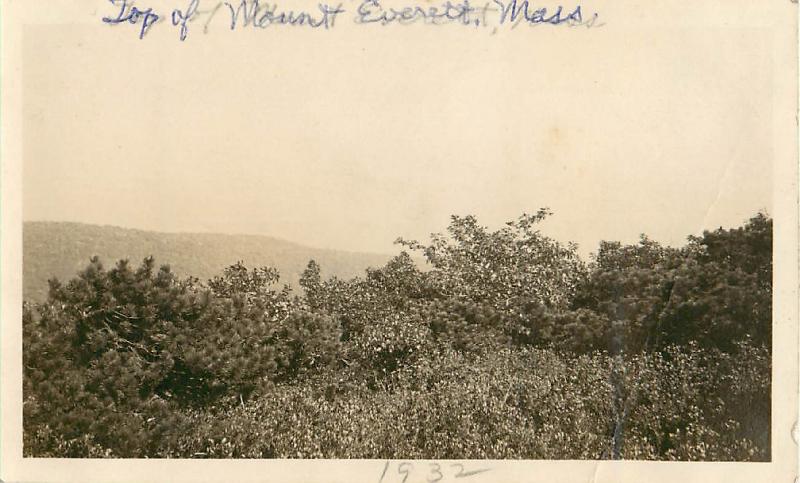 Top of Mount Everett, Mass
1932